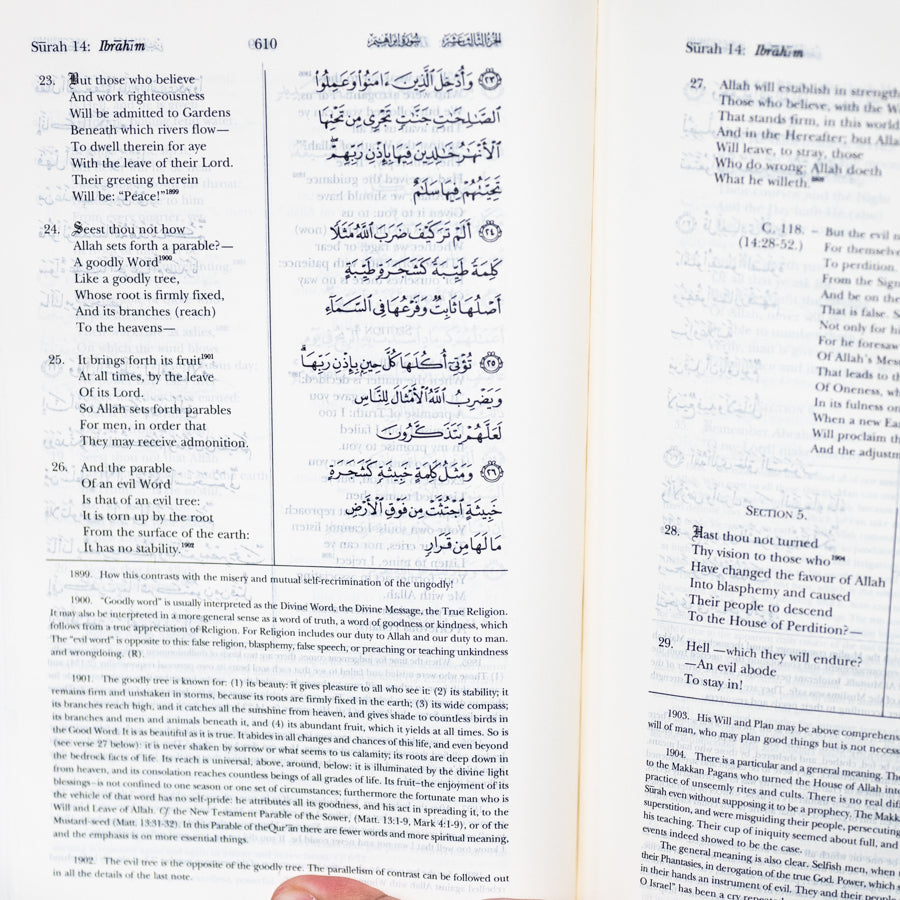 Sūrah 14: Ibrāhīm
610
سورة إبراهيم
الجزء الثالث عشر
23. But those who believe
And work righteousness
Will be admitted to Gardens
Beneath which rivers flow—
To dwell therein for aye
With the leave of their Lord.
Their greeting therein
Will be: “Peace!”1899
24. Seest thou not how
Allah sets forth a parable?—
A goodly Word1900
Like a goodly tree,
Whose root is firmly fixed,
And its branches (reach)
To the heavens—
25. It brings forth its fruit1901
At all times, by the leave
Of its Lord.
So Allah sets forth parables
For men, in order that
They may receive admonition.
26. And the parable
Of an evil Word
Is that of an evil tree:
It is torn up by the root
From the surface of the earth:
It has no stability.1902
٢٣ وَأُدْخِلَ ٱلَّذِينَ ءَامَنُوا۟ وَعَمِلُوا۟
ٱلصَّـٰلِحَـٰتِ جَنَّـٰتٍ تَجْرِى مِن تَحْتِهَا
ٱلْأَنْهَـٰرُ خَـٰلِدِينَ فِيهَا بِإِذْنِ رَبِّهِمْ ۖ
تَحِيَّتُهُمْ فِيهَا سَلَـٰمٌ
٢٤ أَلَمْ تَرَ كَيْفَ ضَرَبَ ٱللَّهُ مَثَلًا
كَلِمَةً طَيِّبَةً كَشَجَرَةٍ طَيِّبَةٍ
أَصْلُهَا ثَابِتٌ وَفَرْعُهَا فِى ٱلسَّمَآءِ
٢٥ تُؤْتِىٓ أُكُلَهَا كُلَّ حِينٍۭ بِإِذْنِ رَبِّهَا ۗ
وَيَضْرِبُ ٱللَّهُ ٱلْأَمْثَالَ لِلنَّاسِ
لَعَلَّهُمْ يَتَذَكَّرُونَ
٢٦ وَمَثَلُ كَلِمَةٍ خَبِيثَةٍ كَشَجَرَةٍ
خَبِيثَةٍ ٱجْتُثَّتْ مِن فَوْقِ ٱلْأَرْضِ
مَا لَهَا مِن قَرَارٍ
1899. How this contrasts with the misery and mutual self-recrimination of the ungodly!
1900. “Goodly word” is usually interpreted as the Divine Word, the Divine Message, the True Religion.
It may also be interpreted in a more general sense as a word of truth, a word of goodness or kindness, which
follows from a true appreciation of Religion. For Religion includes our duty to Allah and our duty to man.
The “evil word” is opposite to this: false religion, blasphemy, false speech, or preaching or teaching unkindness
and wrongdoing. (R).
1901. The goodly tree is known for: (1) its beauty: it gives pleasure to all who see it: (2) its stability; it
remains firm and unshaken in storms, because its roots are firmly fixed in the earth; (3) its wide compass;
its branches reach high, and it catches all the sunshine from heaven, and gives shade to countless birds in
its branches and men and animals beneath it, and (4) its abundant fruit, which it yields at all times. So is
the Good Word. It is as beautiful as it is true. It abides in all changes and chances of this life, and even beyond
(see verse 27 below): it is never shaken by sorrow or what seems to us calamity: its roots are deep down in
the bedrock facts of life. Its reach is universal, above, around, below: it is illuminated by the divine light
from heaven, and its consolation reaches countless beings of all grades of life. Its fruit—the enjoyment of its
blessings—is not confined to one season or one set of circumstances; furthermore the fortunate man who is
the vehicle of that word has no self-pride: he attributes all its goodness, and his act in spreading it, to the
Will and Leave of Allah. Cf. the New Testament Parable of the Sower, (Matt. 13:1-9, Mark 4:1-9), or of the
Mustard-seed (Matt. 13:31-32). In this Parable of the Qur’ān there are fewer words and more spiritual meaning,
and the emphasis is on more essential things.
1902. The evil tree is the opposite of the goodly tree. The parallelism of contrast can be followed out
in all the details of the last note.
Sūrah 14: Ibrāhīm
27. Allah will establish in strength
Those who believe, with the
That stands firm, in this world
And in the Hereafter; but
Will leave, to stray, those
Who do wrong: Allah doeth
What he willeth.
C. 118. – But the evil
(14:28-52.) For themselves
To perdition.
From the
And be on the
That is false.
Not only for
For he foresaw
Of Allah’s
That leads to
Of Oneness,
In its fulness
When a new
Will proclaim
And the
SECTION 5.
28. Hast thou not turned
Thy vision to those who1904
Have changed the favour of Allah
Into blasphemy and caused
Their people to descend
To the House of Perdition?—
29. Hell—which they will endure?
—An evil abode
To stay in!
1903. His Will and Plan may be above
will of man, who may plan good things but is not
1904. There is a particular and a general meaning.
to the Makkan Pagans who turned the House of Allah
practice of unseemly rites and cults. There is no real
Sūrah even without supposing it to be a prophecy. The
superstition, and were misguiding their people, persecuting
his teaching. Their cup of iniquity seemed about full, and
events indeed showed to be the case.
The general meaning is also clear. Selfish men, when
their Phantasies, in derogation of the true God. Power, which
in their hands an instrument of evil. They and their people
O Israel” has been a cry